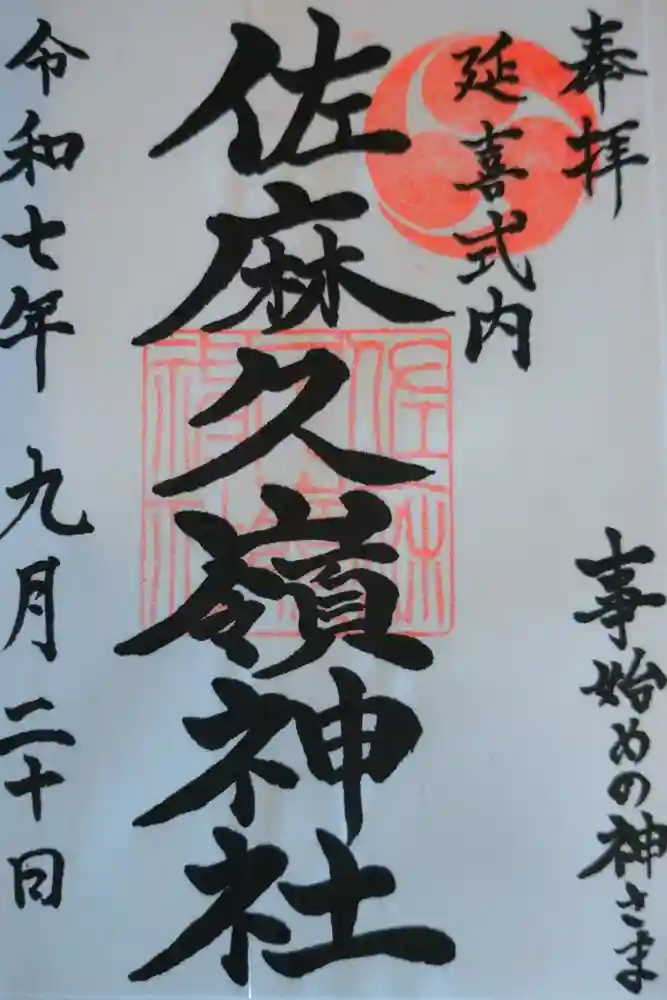 奉拝
延喜式内
事始めの神さま
佐麻久嶺神社
令和七年 九月二十日